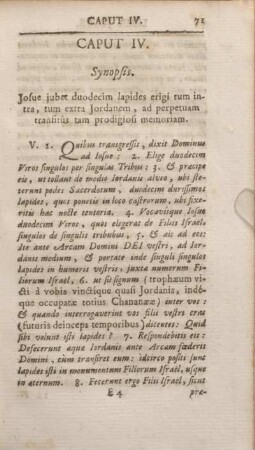 CAPUT IV. 71
CAPUT IV.
Synopsis.
Josue jubet duodecim lapides erigi tum in-
tra, tum extra Jordanem, ad perpetuam
transitûs tam prodigiosi memoriam.
V. 1. Quibus transgressis, dixit Dominus
ad Josue: 2. Elige duodecim
Viros singulos per singulas Tribus: 3. & præcipe
eis, ut tollant de medio Jordanis alveo, ubi ste-
terunt pedes Sacerdotum, duodecim durissimos
lapides, quos ponetis in loco castrorum, ubi fixe-
ritis hac nocte tentoria. 4. Vocavitque Josue
duodecim Viros, quos elegerat de Filiis Israël,
singulos de singulis tribubus, 5. & ait ad eos:
Ite ante Arcam Domini DEI vestri, ad Jor-
danis medium, & portate inde singuli singulos
lapides in humeris vestris, juxta numerum Fi-
liorum Israël, 6. ut sit signum (trophæum vi-
cti à vobis vinctique quasi Jordanis, ind-
éque occupatæ totius Chananææ) inter vos: &
quando interrogaverint vos filii vestri cras
(futuris deinceps temporibus) dicentes: Quid
sibi volunt isti lapides? 7. Respondebitis eis:
Defecerunt aquæ Jordanis ante Arcam fœderis
Domini, cùm transiret eum: idcirco positi sunt
lapides isti in monumentum Filiorum Israël, usque
in æternum. 8. Fecerunt ergo Filii Israël, sicut
E 4 præ-